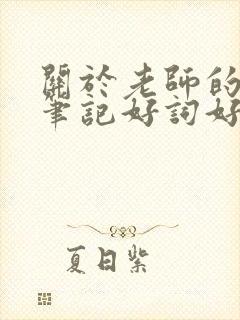 關於老師的
筆記好詞好
夏日紫